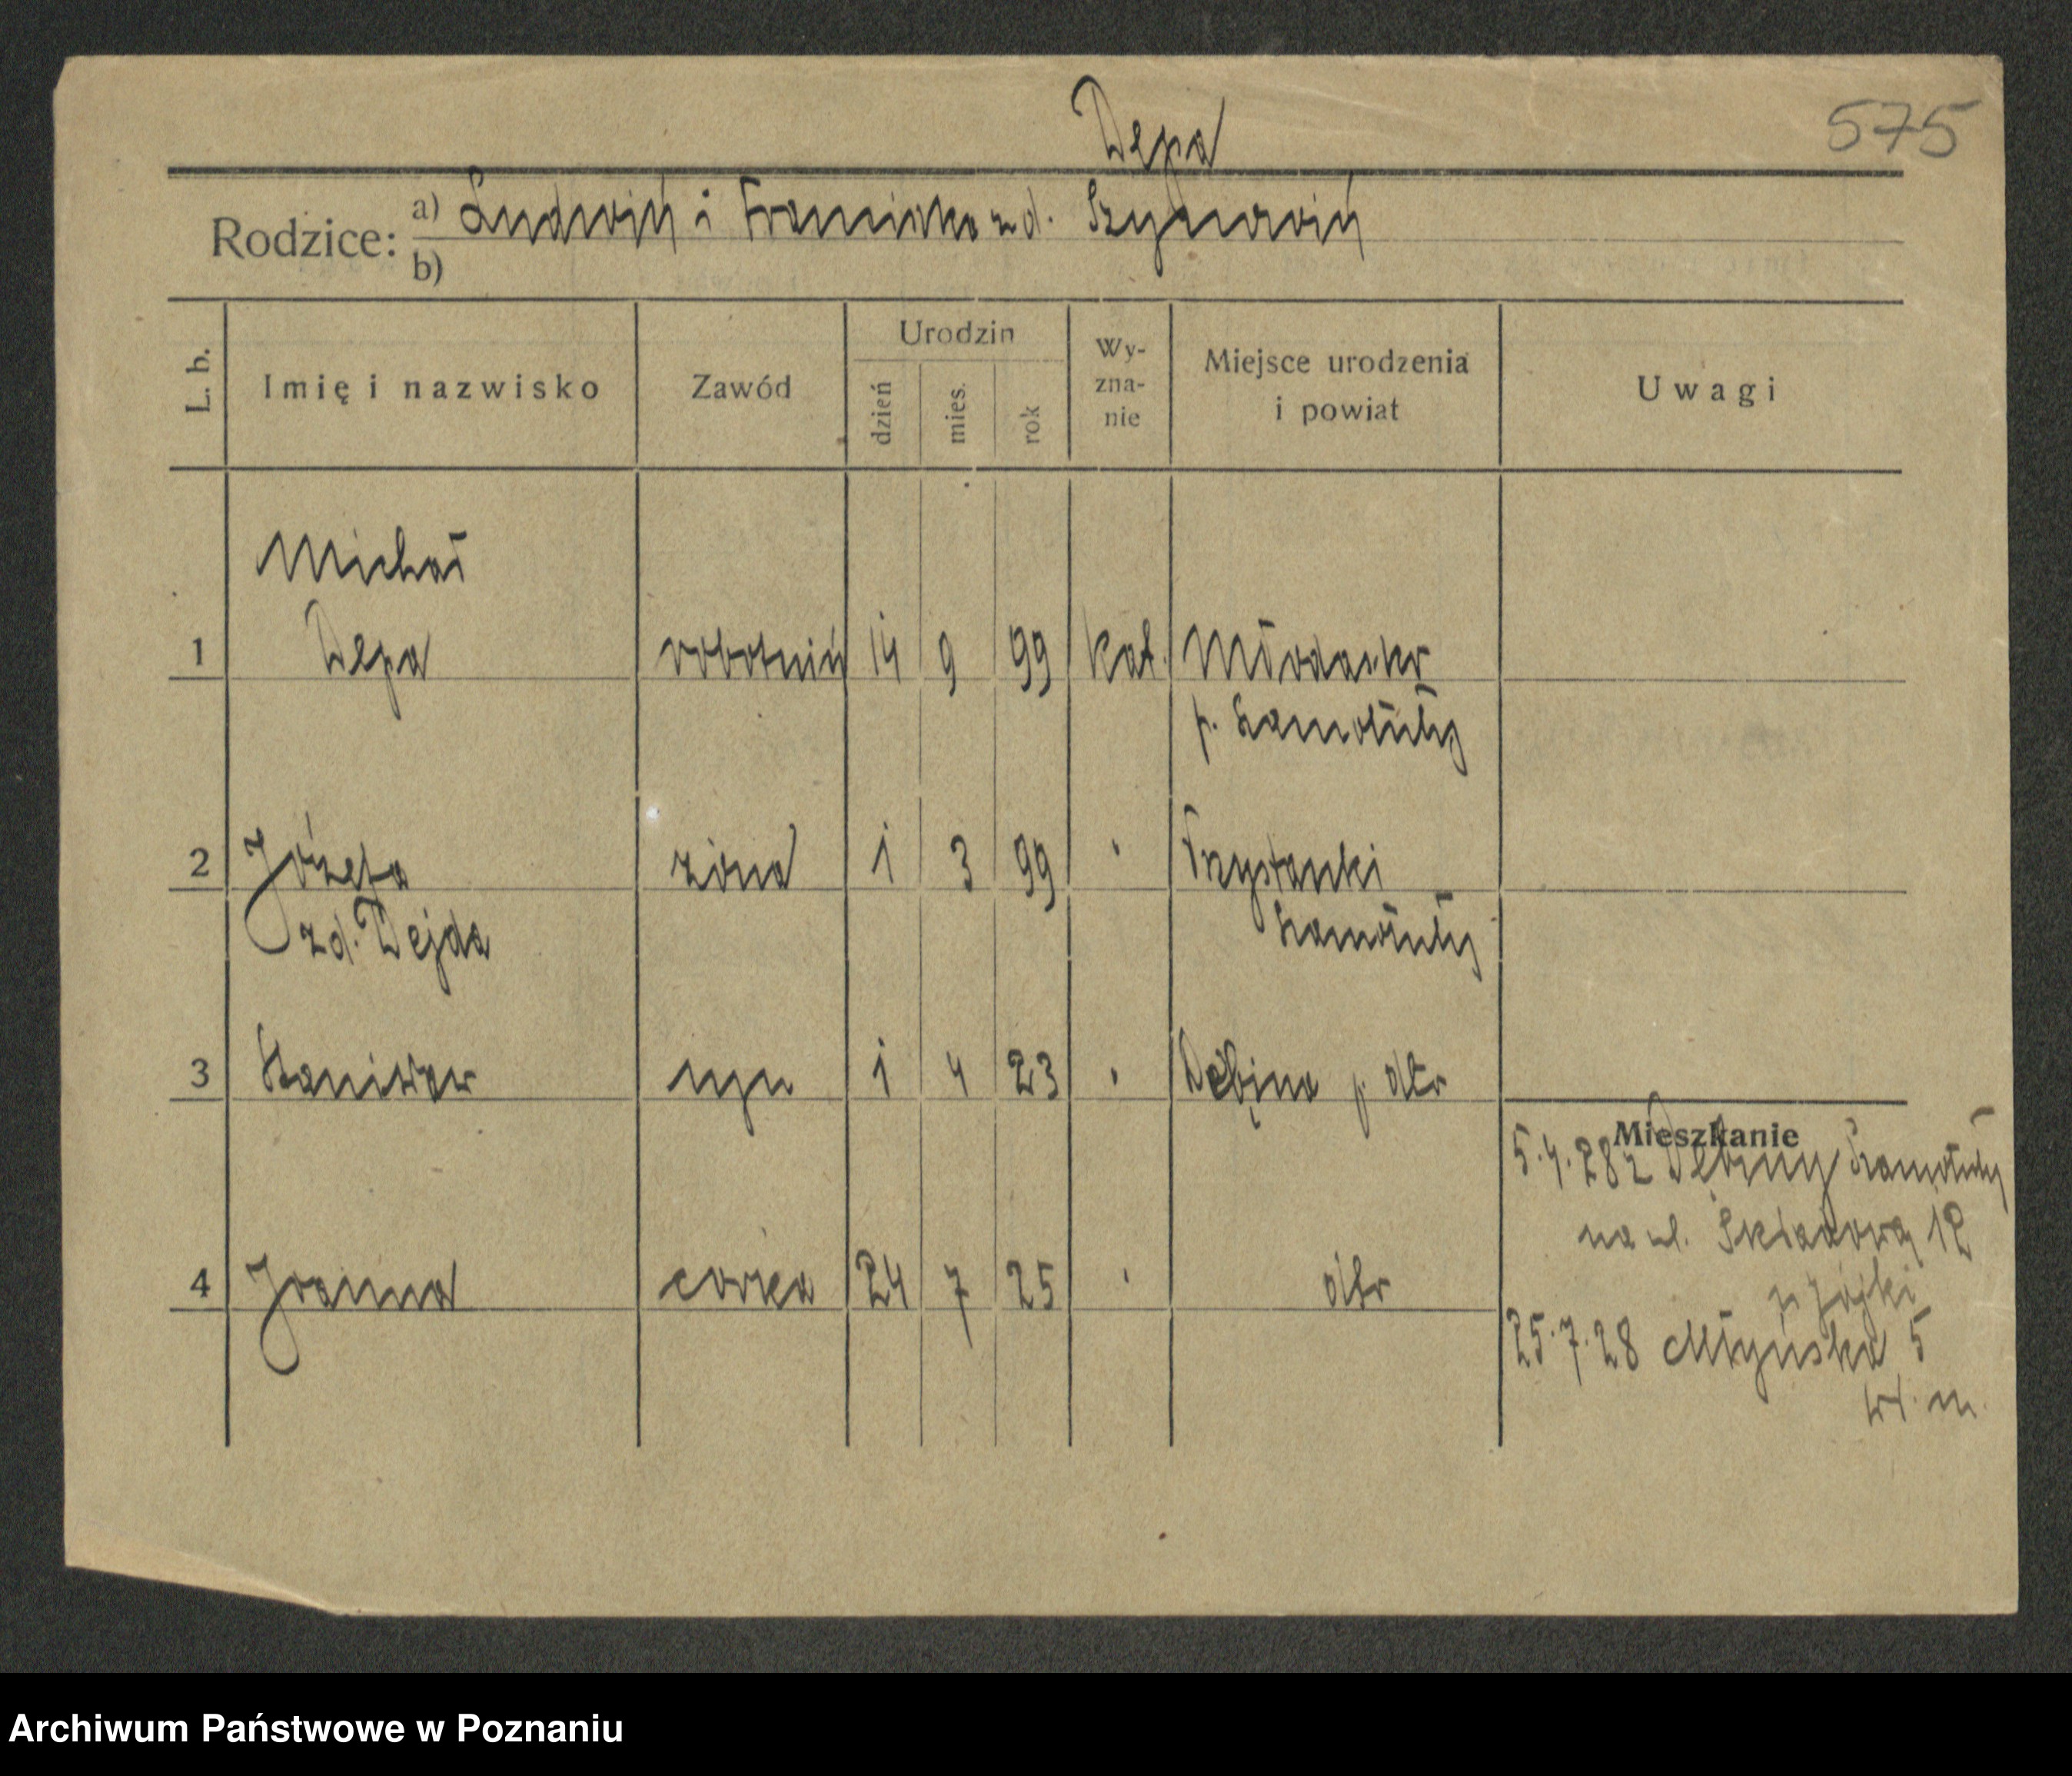 Depa
575
Rodzice: a) Ludwik i Franciszka zd. Szydłowski
b)
L. b. Imię i nazwisko Zawód Urodzin dzień mies. rok Wy-zna-nie Miejsce urodzenia i powiat Uwagi
Michał
1 Depa robotnik 14 9 99 kat. Młodasko
p. Szamotuły
2 Józefa żona 1 3 99 " Przystanki
zd. Dejda Szamotuły
3 Stanisław syn 1 4 23 " Dębina p. dto
Mieszkanie
5.4.28 z Dębiny Szamotuły
na ul. Składową 12
4 Joanna córka 24 7 25 " dto
25.7.28 Młyńska 5
w. m.
Archiwum Państwowe w Poznaniu